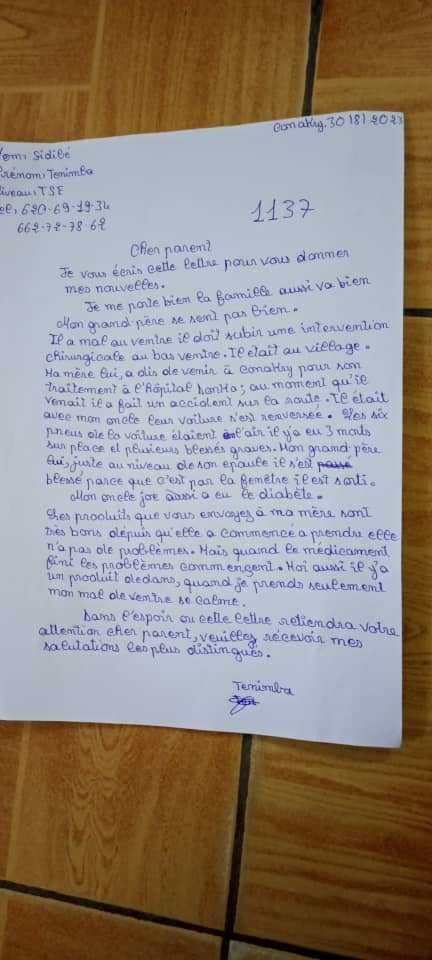 Conakry, 30/8/2023
Nom: Sidibé
Prénom: Tenimba
Niveau: TSE
Tel: 620-69-19-34
662-72-78-62
1137
Cher parent
Je vous écris cette lettre pour vous donner
mes nouvelles.
Je me porte bien la famille aussi va bien
Mon grand-père se sent pas bien.
Il a mal au ventre il doit subir une intervention
chirurgicale au bas ventre. Il était au village.
Ma mère lui, a dis de venir à Conakry pour son
traitement à l'hôpital Donka; au moment qu'il
venait il a fait un accident sur la route. Il était
avec mon oncle leur voiture s'est renversée. Les six
pneus de la voiture étaient l'air il y'a eu 3 morts
sur place et plusieurs blessés graves. Mon grand-père
lui, juste au niveau de son epaule il s'est
blessé parce que c'est par la fenêtre il est sorti.
Mon oncle joe aussi a eu le diabète.
Les produits que vous envoyez à ma mère sont
très bons dépuis qu'elle a commencé a prendre elle
n'a pas de problèmes. Mais quand le médicament
fini les problèmes commençent. Moi aussi il y'a
un produit dedans, quand je prends seulement
mon mal de ventre se calme.
Dans l'espoir ou cette lettre retiendra votre
attention cher parent, veuillez récevoir mes
salutations les plus distingués.
Tenimba